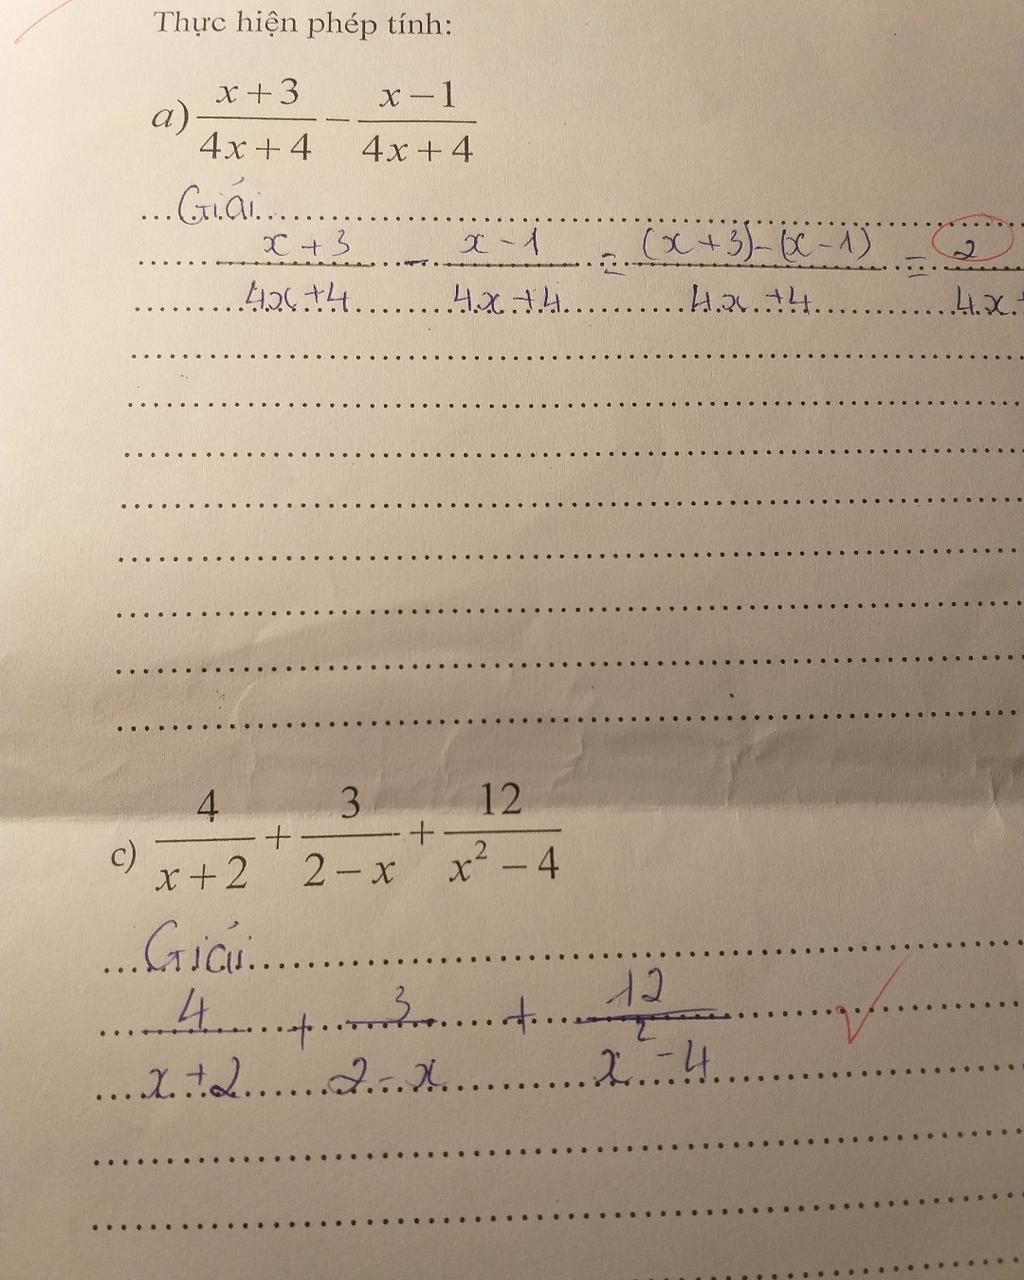 Thực hiện phép tính:
a) \frac{x+3}{4x+4} - \frac{x-1}{4x+4}
Giải
\frac{x+3}{4x+4} - \frac{x-1}{4x+4} = \frac{(x+3)-(x-1)}{4x+4} = \frac{2}{4x+
c) \frac{4}{x+2} + \frac{3}{2-x} + \frac{12}{x^2-4}
Giải
\frac{4}{x+2} + \frac{3}{2-x} + \frac{12}{x^2-4}